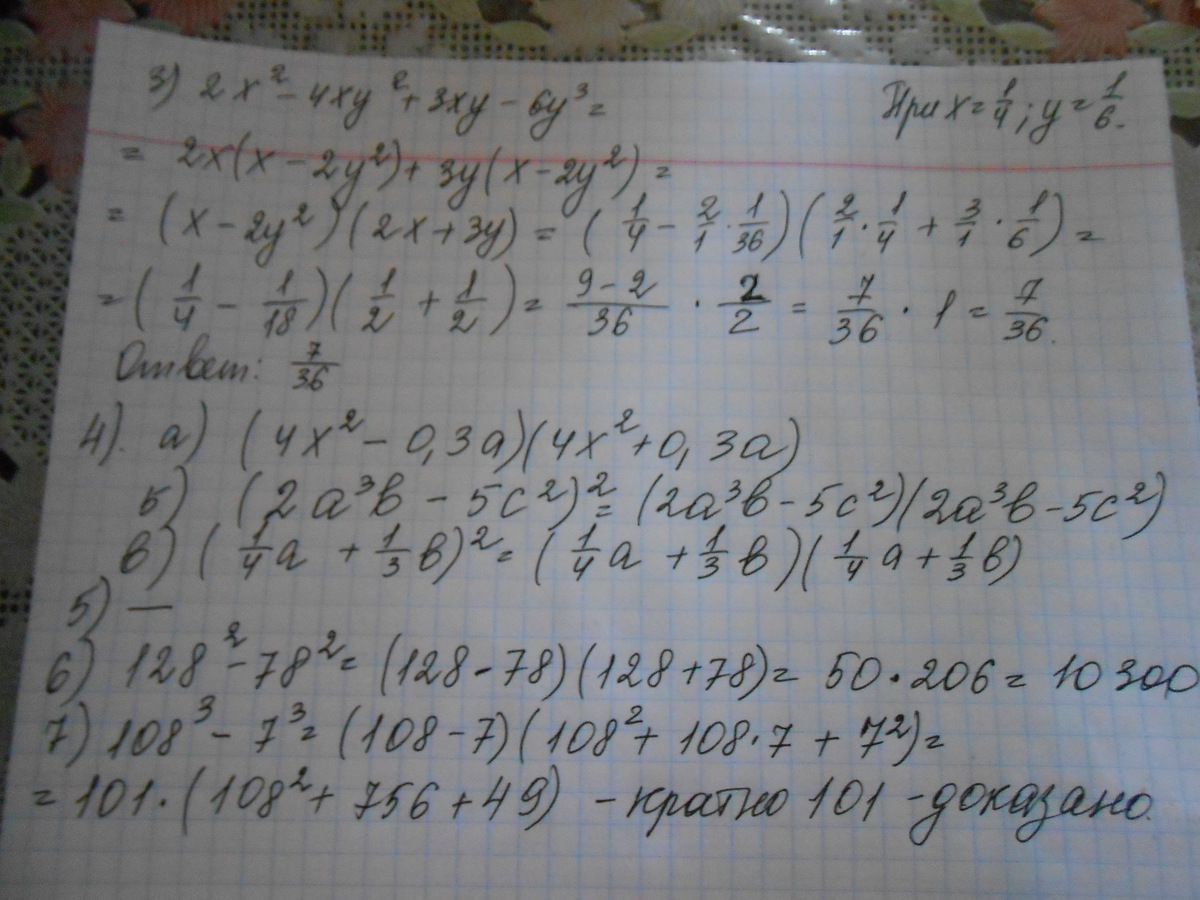 3) 2x² - 4xy² + 3xy - 6y³ = При x = 1/4; y = 1/6.
= 2x(x - 2y²) + 3y(x - 2y²) =
= (x - 2y²)(2x + 3y) = (1/4 - 2/1 · 1/36)(2/1 · 1/4 + 3/1 · 1/6) =
= (1/4 - 1/18)(1/2 + 1/2) = 9-2/36 · 2/2 = 7/36 · 1 = 7/36.
Ответ: 7/36
4). а) (4x² - 0,3a)(4x² + 0,3a)
б) (2a³b - 5c²)² = (2a³b - 5c²)(2a³b - 5c²)
в) (1/4a + 1/3b)² = (1/4a + 1/3b)(1/4a + 1/3b)
5) —
6) 128² - 78² = (128 - 78)(128 + 78) = 50 · 206 = 10 300
7) 108³ - 7³ = (108 - 7)(108² + 108 · 7 + 7²) =
= 101 · (108² + 756 + 49) - кратно 101 - доказано.